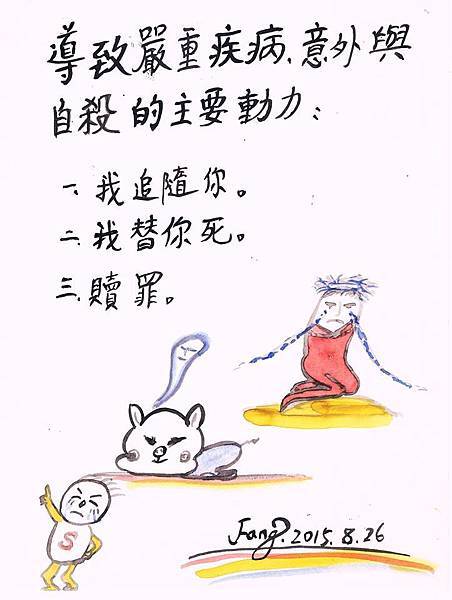 導致嚴重疾病、意外與
自殺的主要動力：
一、我追隨你。
二、我替你死。
三、贖罪。
S
Fang. 2015. 8. 26